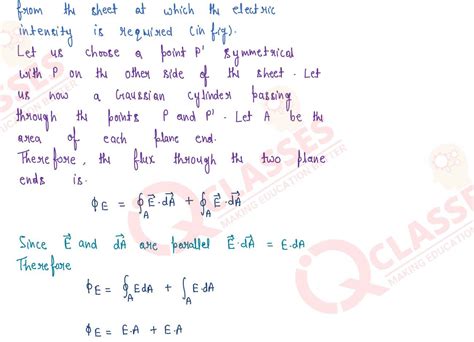 from the sheet at which the electric
intensity is required (in fig).
Let us choose a point P' symmetrical
with P on the other side of the sheet. Let
us now a Gaussian cylinder passing
through the points P and P'. Let A be the
area of each plane end.
Therefore, the flux through the two plane
ends is.
ϕ_E = ∮_A E⃗·dA⃗ + ∮_A E⃗·dA⃗
Since E⃗ and dA⃗ are parallel E⃗·dA⃗ = E·dA
Therefore
ϕ_E = ∮_A EdA + ∫_A E·dA
ϕ_E = E·A + E·A
IQ CLASSES
MAKING EDUCATION